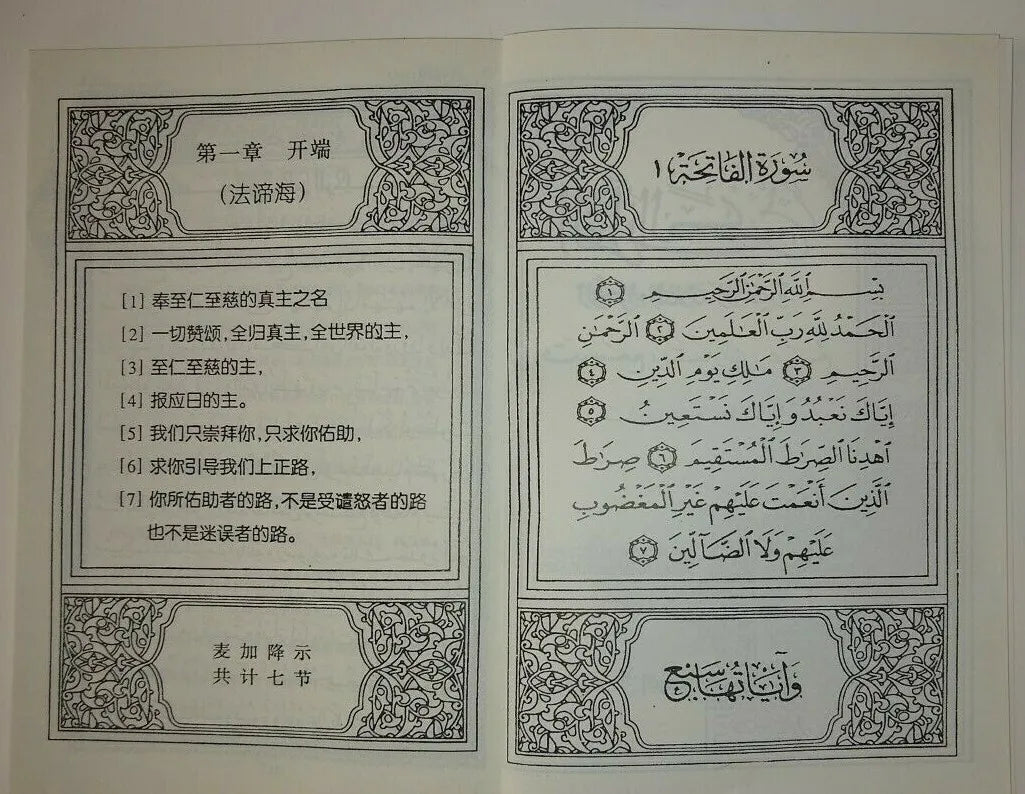 第一章 开端
(法谛海)
[1] 奉至仁至慈的真主之名
[2] 一切赞颂,全归真主,全世界的主,
[3] 至仁至慈的主,
[4] 报应日的主。
[5] 我们只崇拜你,只求你佑助,
[6] 求你引导我们上正路,
[7] 你所佑助者的路,不是受谴怒者的路
也不是迷误者的路。
麦加降示
共计七节
سُورَةُ الفَاتِحَةِ ١
بِسْمِ ٱللَّهِ ٱلرَّحْمَٰنِ ٱلرَّحِيمِ ١
ٱلْحَمْدُ لِلَّهِ رَبِّ ٱلْعَٰلَمِينَ ٢ ٱلرَّحْمَٰنِ
ٱلرَّحِيمِ ٣ مَٰلِكِ يَوْمِ ٱلدِّينِ ٤
إِيَّاكَ نَعْبُدُ وَإِيَّاكَ نَسْتَعِينُ ٥
ٱهْدِنَا ٱلصِّرَٰطَ ٱلْمُسْتَقِيمَ ٦ صِرَٰطَ
ٱلَّذِينَ أَنْعَمْتَ عَلَيْهِمْ غَيْرِ ٱلْمَغْضُوبِ
عَلَيْهِمْ وَلَا ٱلضَّآلِّينَ ٧
وَآيَاتُهَا سَبْعٌ